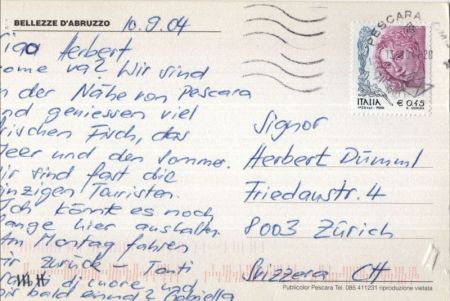 BELLEZZE D'ABRUZZO
10.9.04
Herbert
come va? Wir sind
in der Nähe von Pescara
und geniessen viel
frischen Fisch, das
Meer und den Sommer.
Wir sind fast die
einzigen Touristen.
Ich könnte es noch
lange hier aushalten.
Am Montag fahren
wir zurück. Tanti
di cuore und
bis bald Gabriella
PESCARA
ITALIA
€ 0,45
Signor
Herbert Dümml
Friedaustr. 4
8003 Zürich
Svizzera CH
Publicolor Pescara Tel. 085.411231 riproduzione vietata